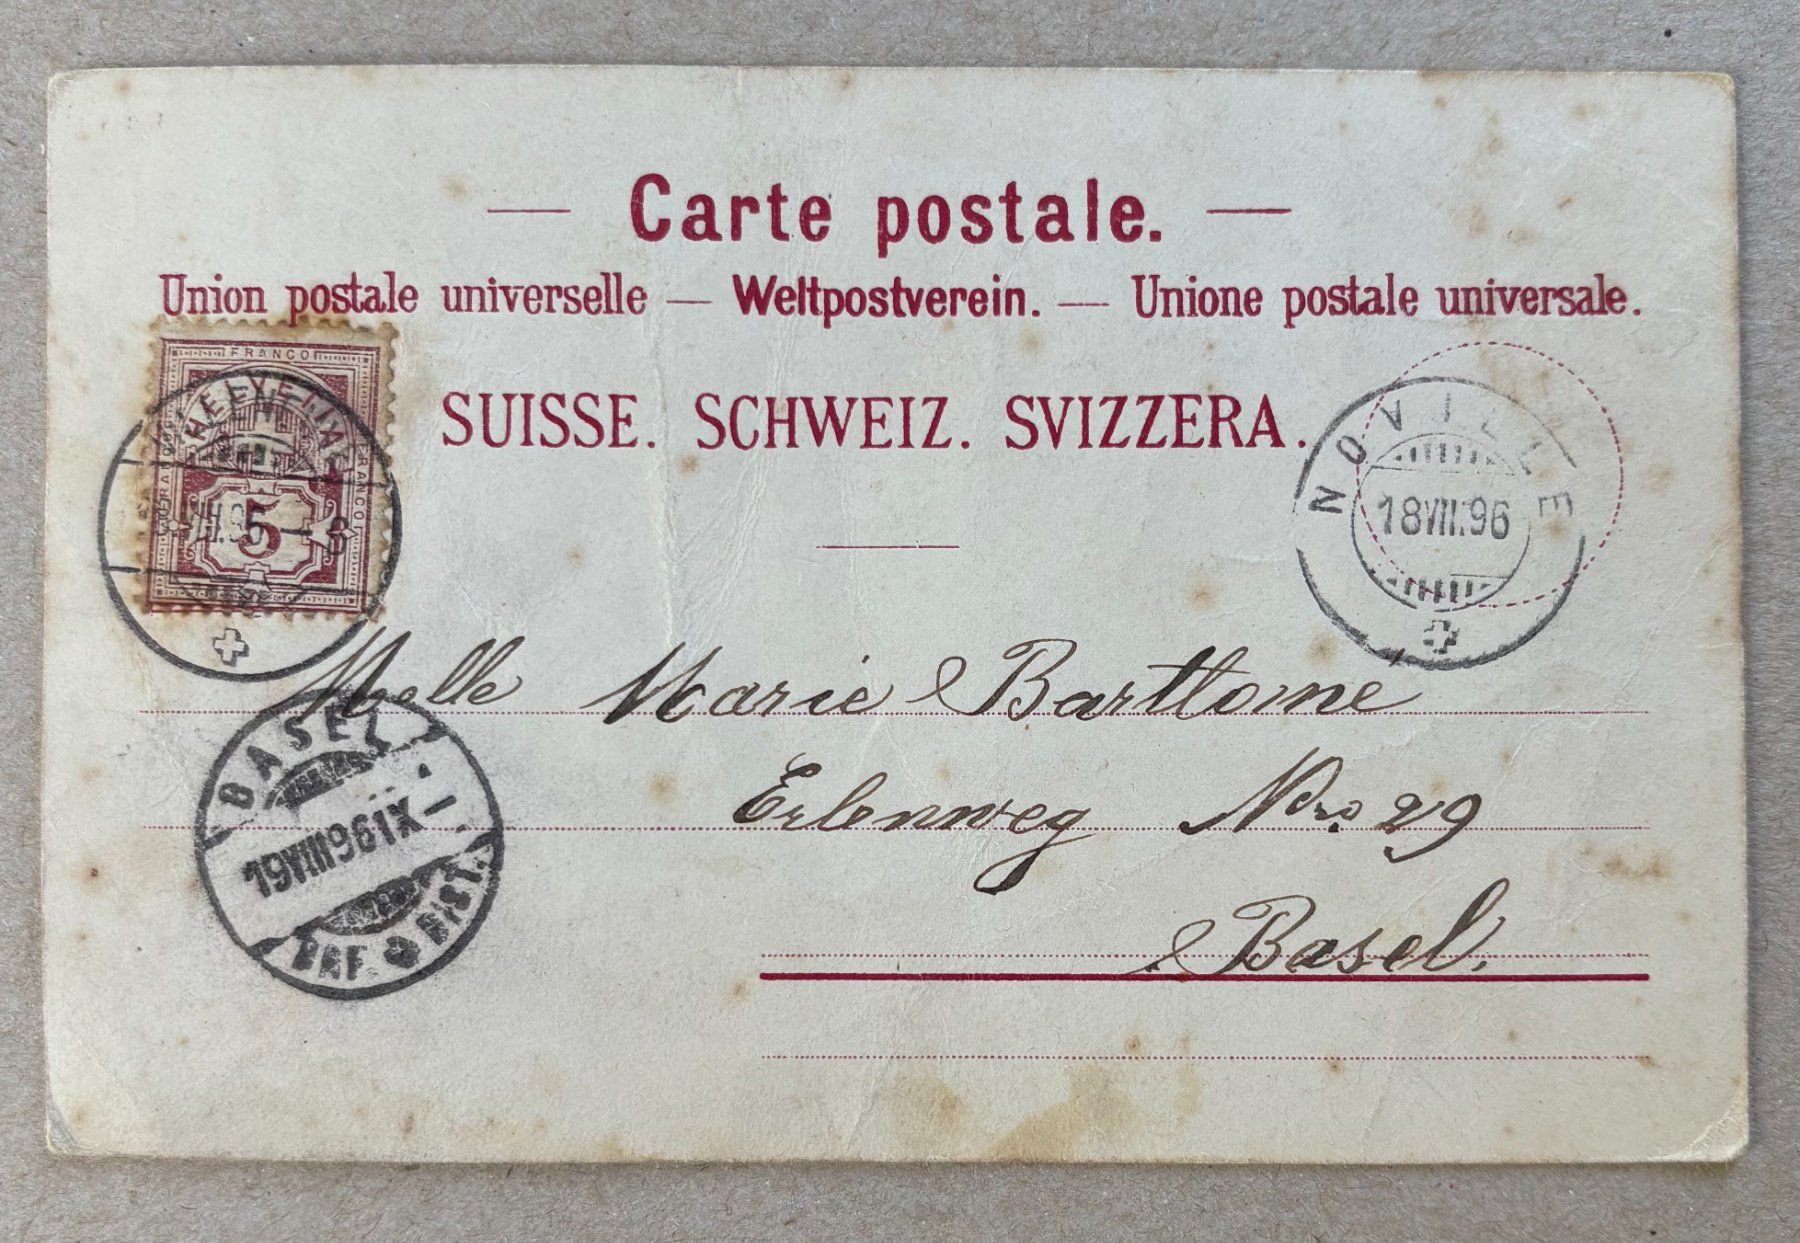 Carte postale.
Union postale universelle — Weltpostverein. — Unione postale universale.
SUISSE. SCHWEIZ. SVIZZERA.
FRANCO
FRANCO
5
NOVILLE
18VIII.96
Melle Marie Barttomé
Erlenweg Nro. 29
Basel.
BASEL
19VIII96IX
BRF. DIST.